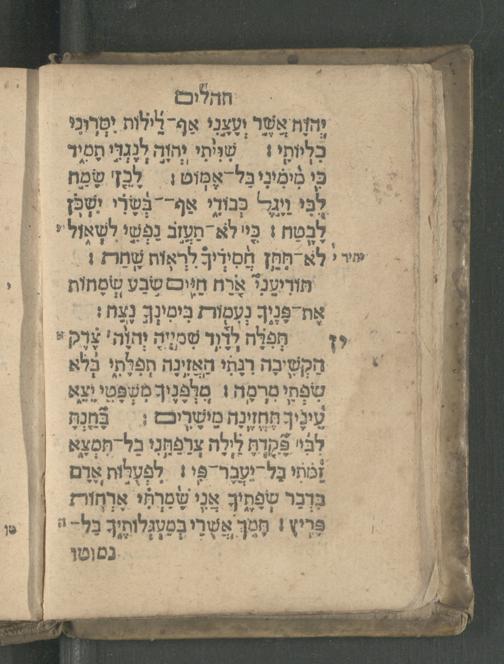 תהלים
יְהוָה אֲשֶׁר יְעָצָנִי אַף־לֵילוֹת יִסְּרוּנִי
כִלְיוֹתָי׃ שִׁוִּיתִי יְהוָה לְנֶגְדִּי תָמִיד
כִּי מִימִינִי בַּל־אֶמּוֹט׃ לָכֵן שָׂמַח
לִבִּי וַיָּגֶל כְּבוֹדִי אַף־־בְּשָׂרִי יִשְׁכֹּן
לָבֶטַח׃ כִּי לֹא־תַעֲזֹב נַפְשִׁי לִשְׁאוֹל
לֹא־תִתֵּן חֲסִידֶיךָ לִרְאוֹת שָׁחַת׃ יתיר י
תּוֹדִיעֵנִי אֹרַח חַיִּים שֹׂבַע שְׂמָחוֹת
אֶת־פָּנֶיךָ נְעִמוֹת בִּימִינְךָ נֶצַח׃
יז תְּפִלָּה לְדָוִד שִׁמְעָה יְהוָה צֶדֶק
הַקְשִׁיבָה רִנָּתִי הַאֲזִינָה תְפִלָּתִי בְּלֹא
שִׂפְתֵי מִרְמָה׃ מִלְּפָנֶיךָ מִשְׁפָּטִי יֵצֵא
עֵינֶיךָ תֶּחֱזֶינָה מֵישָׁרִים׃ בָּחַנְתָּ
לִבִּי פָּקַדְתָּ לַּיְלָה צְרַפְתַּנִי בַל־תִּמְצָא
זַמֹּתִי בַּל־יַעֲבָר־פִּי׃ לִפְעֻלּוֹת אָדָם
בִּדְבַר שְׂפָתֶיךָ אֲנִי שָׁמַרְתִּי אָרְחוֹת
פָּרִיץ׃ תָּמֹךְ אֲשֻׁרַי בְּמַעְגְּלוֹתֶיךָ בַּל־
נמוטו